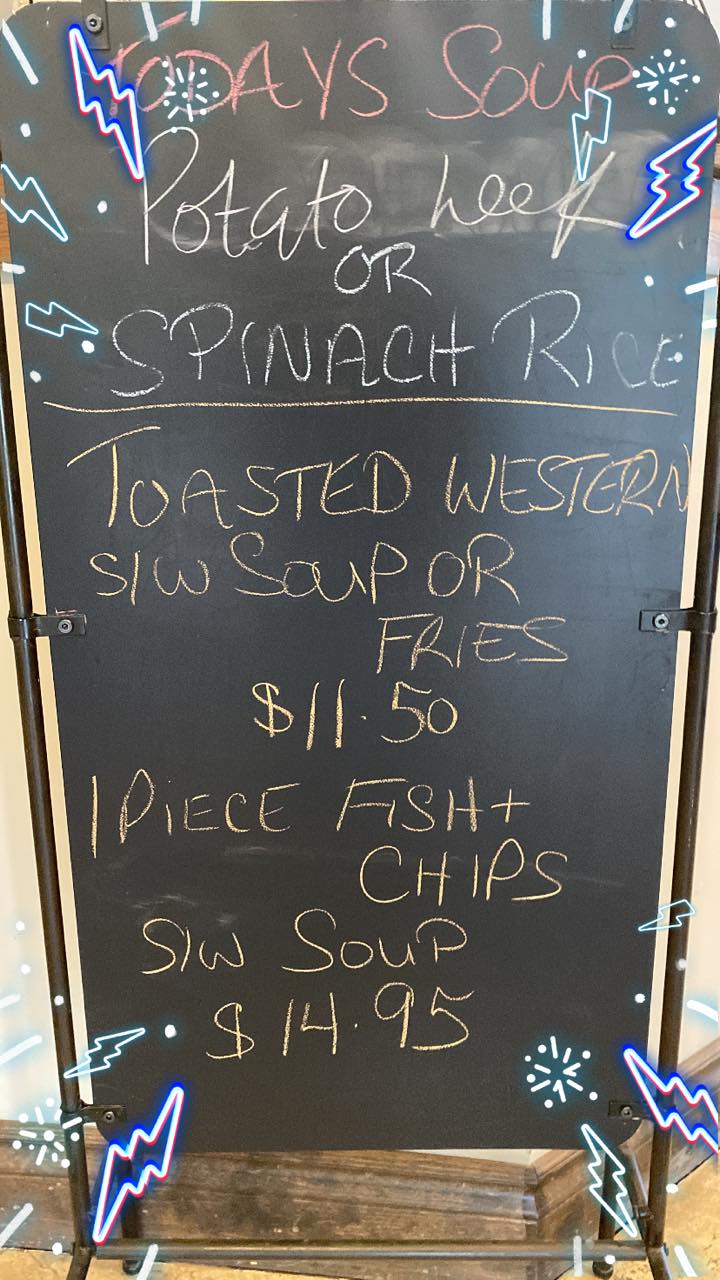 TODAYS SOUP
Potato Leek
OR
SPINACH RICE
TOASTED WESTERN
S/W SOUP OR
FRIES
$11.50
1 PIECE FISH +
CHIPS
S/W SOUP
$14.95